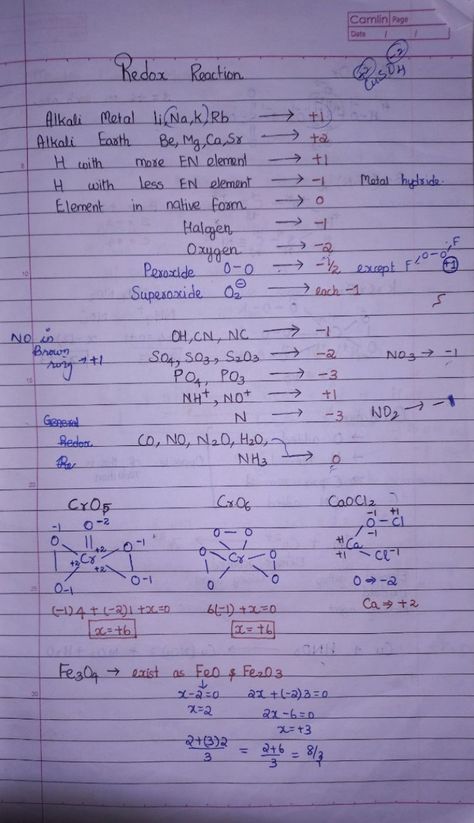 Camlin Page
Date / /
Redox Reaction
Alkali Metal li,(Na,K)Rb → +1
Alkali Earth Be, Mg, Ca, Sr → +2
H with more EN element → +1
H with less EN element → -1 Metal hydride.
Element in native form → 0
Halogen → -1
Oxygen → -2
Peroxide O-O → -1/2 except F O-O F +1
Superoxide O2⊖ → each -1
NO in OH, CN, NC → -1
Brown SO4, SO3, S2O3 → -2 NO3 → -1
ring → +1 PO4, PO3 → -3
NH+, NO+ → +1
N → -3 NO2 → -1
General
Redox CO, NO, N2O, H2O,
NH3 → 0
CrO5 CrO6 CaOCl2
-1 O-2 O - O -1 +1
O || O-1 O O O - Cl
+2 Cr +2 Cr +1 Ca
+2 +1 Cl-1
O-1 O-1 O O O ⇒ -2
(-1)4 + (-2)1 + x = 0 6(-1) + x = 0 Ca ⇒ +2
x = +6 x = +6
Fe3O4 → exist as FeO & Fe2O3
x-2=0 2x + (-2)3 = 0
x=2 2x - 6 = 0
x = +3
2+(3)2/3 = 2+6/3 = 8/3